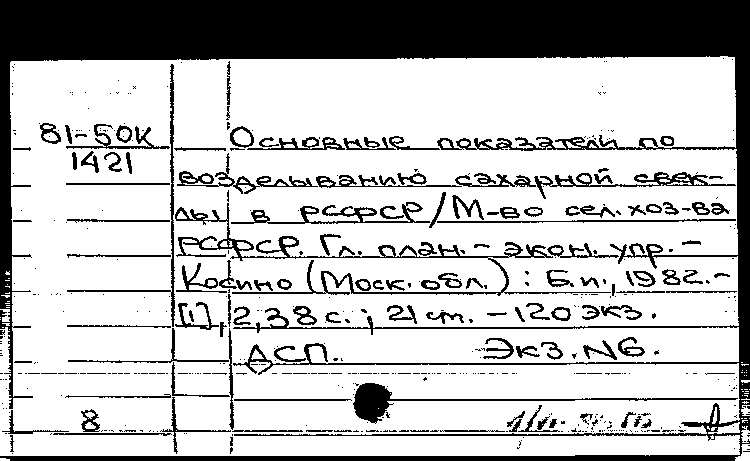 81-50К
1421
Основные показатели по
возделыванию сахарной свек-
лы в РСФСР/М-во сел. хоз-ва
РСФСР. Гл. план.-экон. упр. -
Косино (Моск. обл.) : Б.и., 1982.-
[1], 2, 38 с. ; 21 см. - 120 экз.
ДСП. Экз. N6.
8